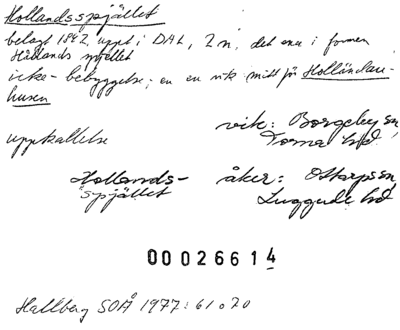 Hollandsspjället
belagt 1842, uppt i DAL, 2 n, det ena i formen
Hållands spjellet
icke-bebyggelse; en vik mitt för Holländare-
husen
uppkallelse
vik: Borgeby sn,
Torna hd
Hollands-
spjället
åker: Ottarps sn,
Luggude hd
00026614
Hallberg SOÅ 1977: 61 o 70